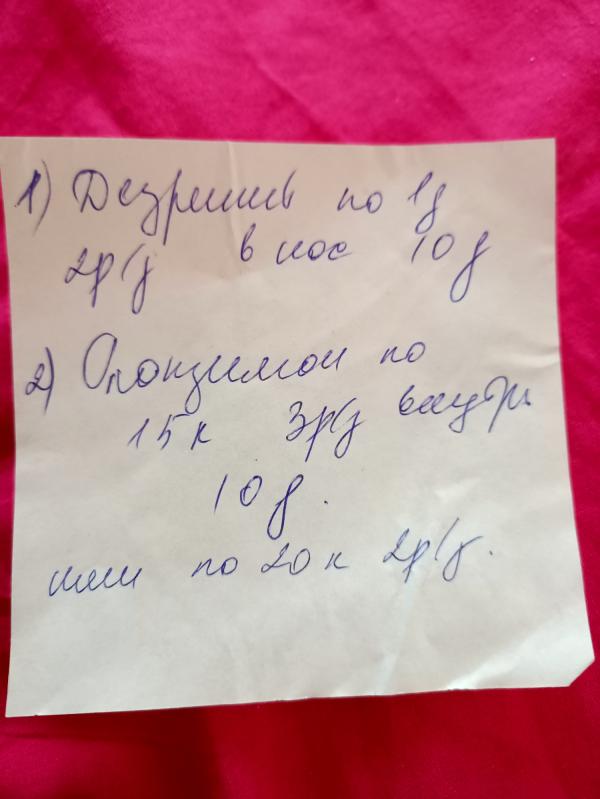 1) Дезринит по 1д
2р/д в нос 10 д
2) по
15 к 3р/д внутрь
10 д.
или по 20 к 2р/д.